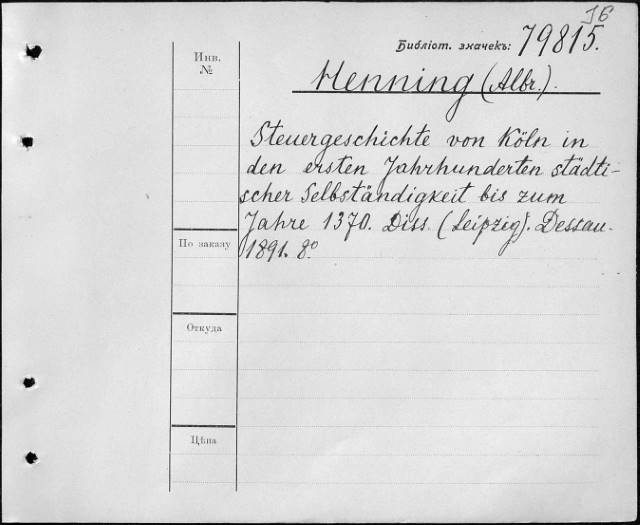 IG
Библіот. значекъ: 79815.
Инв. №
Henning (Albr.).
Steuergeschichte von Köln in
den ersten Jahrhunderten städti-
scher Selbständigkeit bis zum
Jahre 1370. Diss. (Leipzig). Dessau.
1891. 8°
По заказу
Откуда
Цѣна